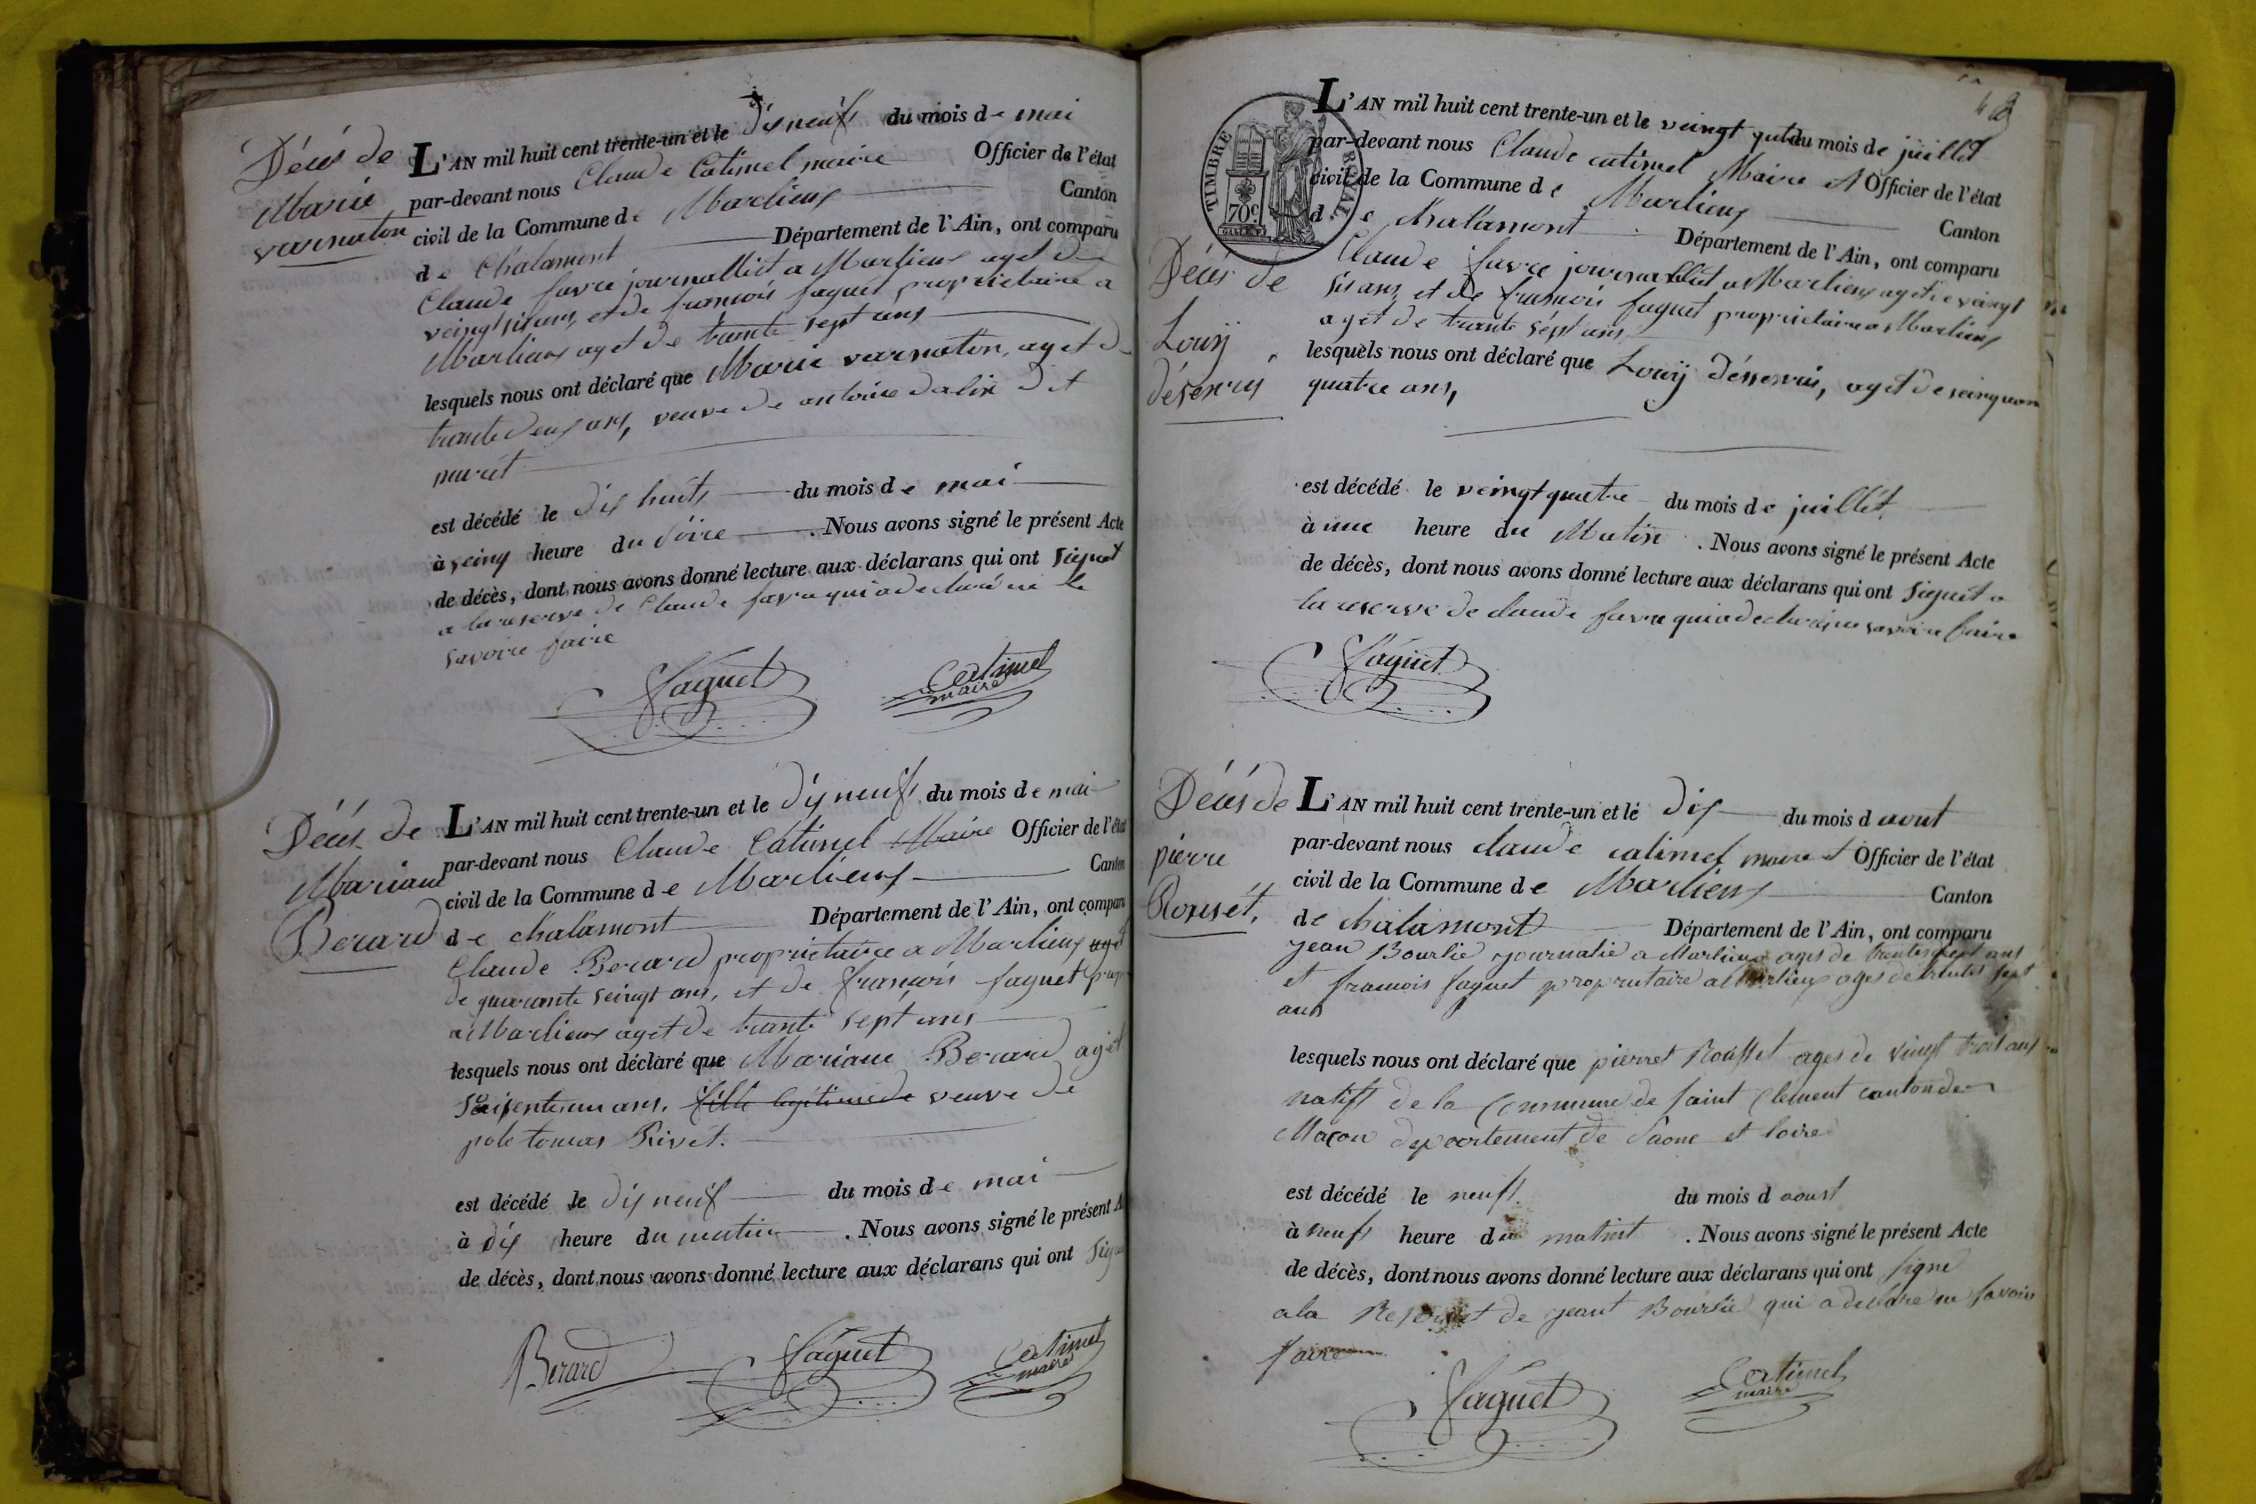 Décés de
Marie
vernaton
L'AN mil huit cent trente-un et le dix neuf du mois de mai
par-devant nous Claude Catimel maire Officier de l'état
civil de la Commune de Marlieux Canton
de Chalamont Département de l'Ain, ont comparu
Claude favre journallict a Marlieux aget de
veingt sis ans, et de francois faguet propriétaire a
Marlieux aget de trante sept ans
lesquels nous ont déclaré que Marie vernaton, aget de
trante deux ans, veuve de antoine dit
est décédé le dix huit du mois de mai
à seinq heure du soire . Nous avons signé le présent Acte
de décès, dont nous avons donné lecture aux déclarans qui ont signet
a la reserve de Claude favre qui a declaré ne le
savoire faire
faguet
Catimel
maire
Décés de
Mariane
Berard
L'AN mil huit cent trente-un et le dix neuf du mois de mai
par-devant nous Claude Catimel Maire Officier de l'état
civil de la Commune de Marlieux Canton
de chalamont Département de l'Ain, ont comparu
Claude Berard propriétaire a Marlieux aget
de quarante seinqt ans, et de francois faguet prop
a Marlieux aget de trante sept ans
lesquels nous ont déclaré que Mariane Berard aget
soisente un ans. fille legitime de veuve de
Rivet.
est décédé le dix neuf du mois de mai
à dix heure du matin . Nous avons signé le présent A
de décès, dont nous avons donné lecture aux déclarans qui ont sign
Berard
faguet
Catimel
maire
TIMBRE ROYAL
70c
L'AN mil huit cent trente-un et le veingt quatre du mois de juillet
par-devant nous Claude catimel Maire et Officier de l'état
civil de la Commune de Marlieux Canton
de Chalamont Département de l'Ain, ont comparu
Décés de
Louij
déserris
Claude favre journallict a Marlieux aget de veingt
sis ans, et de francois faguet propriétaire a Marlieux
aget de trante sept ans
lesquels nous ont déclaré que Louij désserris, aget de seinquante
quatre ans,
est décédé le veingt quatre du mois de juillet
à une heure du Matin . Nous avons signé le présent Acte
de décès, dont nous avons donné lecture aux déclarans qui ont signet a
la reserve de claude favre qui a declaré ne savoire faire
faguet
Décés de
pierre
Rousét.
L'AN mil huit cent trente-un et le dix du mois d aout
par-devant nous claude catimel maire et Officier de l'état
civil de la Commune de Marlieux Canton
de chalamont Département de l'Ain, ont comparu
jean Bourlié journalié a Marlieux ages de trente sept ans
et francois faguet propriétaire a Marlieux ages de trente sept
ans
lesquels nous ont déclaré que pierret Roussel ages de vingt troit ans
natift de la Commune de saint Clement canton de
Macon departement de Saone et loire
est décédé le neuft du mois d aoust
à neuft heure du matint . Nous avons signé le présent Acte
de décès, dont nous avons donné lecture aux déclarans qui ont signe
ala de jeant Bourlié qui a declare ne savoir
faire
faguet
Catimel
maire